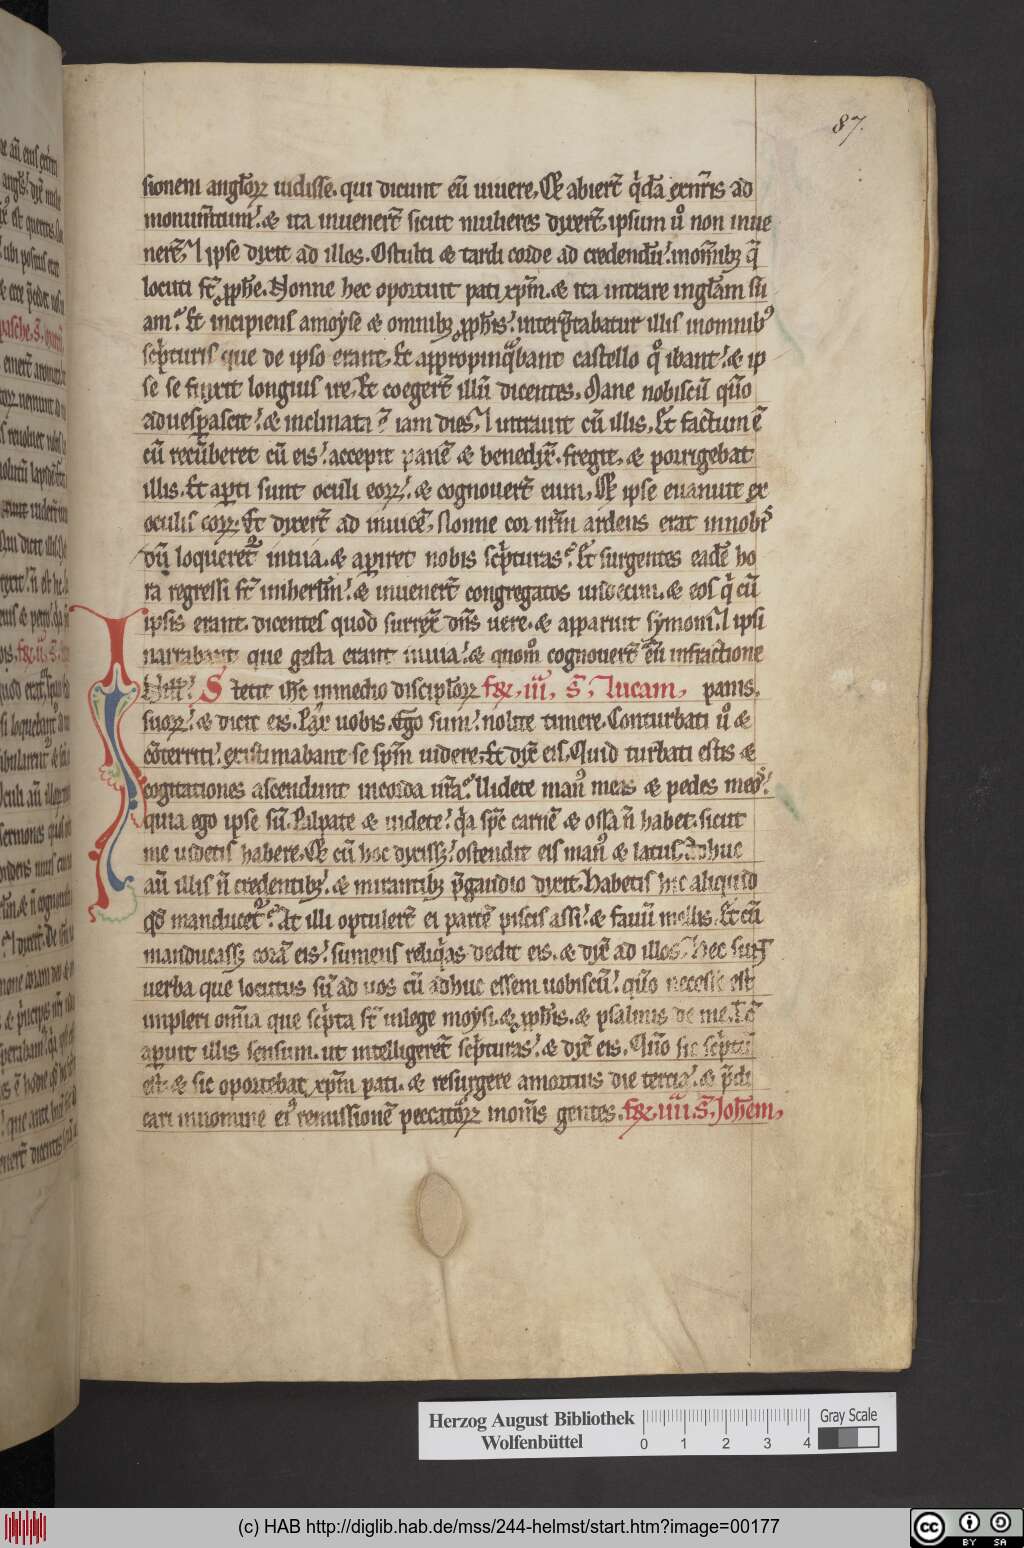 87.
sionem anglo𝝔 uidisse. qui dicunt eū uiuere. Et abiert̄ q̇dā exnr̄is ad
monum̄tum. & ita inuenert̄ sicut mulieres dixert̄. ipsum ů non inue
nert̄. Et ipse dixit ad illos. O stulti & tardi corde ad credendū. in om̄ibꝫ q̄
locuti st̄ ꝓph̄e. Nonne hec oportuit pati xp̄m. & ita intrare in glām su
am. Et incipiens a moyse & omnibꝫ ꝓph̄is. interp̄tabatur illis in omnibꝰ
scͥpturis que de ipso erant. Et appropinq̄bant castello qͦ ibant. & ip
se se finxit longius ire. Et coegert̄ illū dicentes. Mane nobiscū qm̄o
aduesꝑascit. & inclinata ē iam dies. Et intrauit cū illis. Et factum ē
cū recūberet cū eis. accepit panē & benedix̄. fregit. & porrigebat
illis. Et aꝑti sunt oculi eoꝝ. & cognouert̄ eum. Et ipse euanuit ex
oculis eoꝝ. Et dixert̄ ad inuicē. Nonne cor nr̄m ardens erat in nobͥs
dū loqueret᷑ in uia. & aꝑiret nobis scͥpturas. Et surgentes eadē ho
ra regressi st̄ in iherlm̄. & inuenert̄ congregatos undecim. & eos qͥ cū
ipsis erant. dicentes quod surrex̄ dn̄s uere. & apparuit symoni. Et ipsi
narrabant que gesta erant in uia. & quomͦ cognouert̄ eū in fractione
Stetit ih̄c in medio discipl̄oꝝ fer. iii. S. Lucam. panis.
suoꝝ. & dicit eis. Pax uobis. Ego sum. nolite timere. Conturbati ů &
cōterriti. existimabant se sp̄m uidere. Et dix̄ eis. Quid turbati estis &
cogitationes ascendunt in corda ur̄a. Uidete manꝰ meas & pedes meoˢ.
quia ego ipse sū. Palpate & uidete. qͥa sp̄c carnē & ossa n̄ habet. sicut
me uidetis habere. Et cū hoc dixissꝫ. ostendit eis manꝰ & latus. Adhuc
aū illis n̄ credentibꝫ. & mirantibꝫ p̄ gaudio dixit. Habetis hic aliquid
qd̄ manducet᷑. At illi optulert̄ ei partē piscis assi. & fauū mellis. Et cū
manducassꝫ corā eis. sumens reliqͥas dedit eis. & dix̄ ad illos. Hec sunt
uerba que locutus sū ad uos cū adhuc essem uobiscū. qm̄o necesse est
impleri om̄ia que scͥpta st̄ in lege moysi. & ꝓph̄is. & psalmis de me. Tc̄
aꝑuit illis sensum. ut intelligeret̄ scͥpturas. & dix̄ eis. Qm̄o sic scͥptū
est. & sic oportebat xp̄m pati. & resurgere a mortuis die tercia. & p̄di
cari in nomine eiꝰ remissionē peccatoꝝ in om̄s gentes. fer. iiii. S. Joh̄em.
Herzog August Bibliothek
Wolfenbüttel
0 1 2 3 4
Gray Scale
(c) HAB http://diglib.hab.de/mss/244-helmst/start.htm?image=00177
cc BY SA